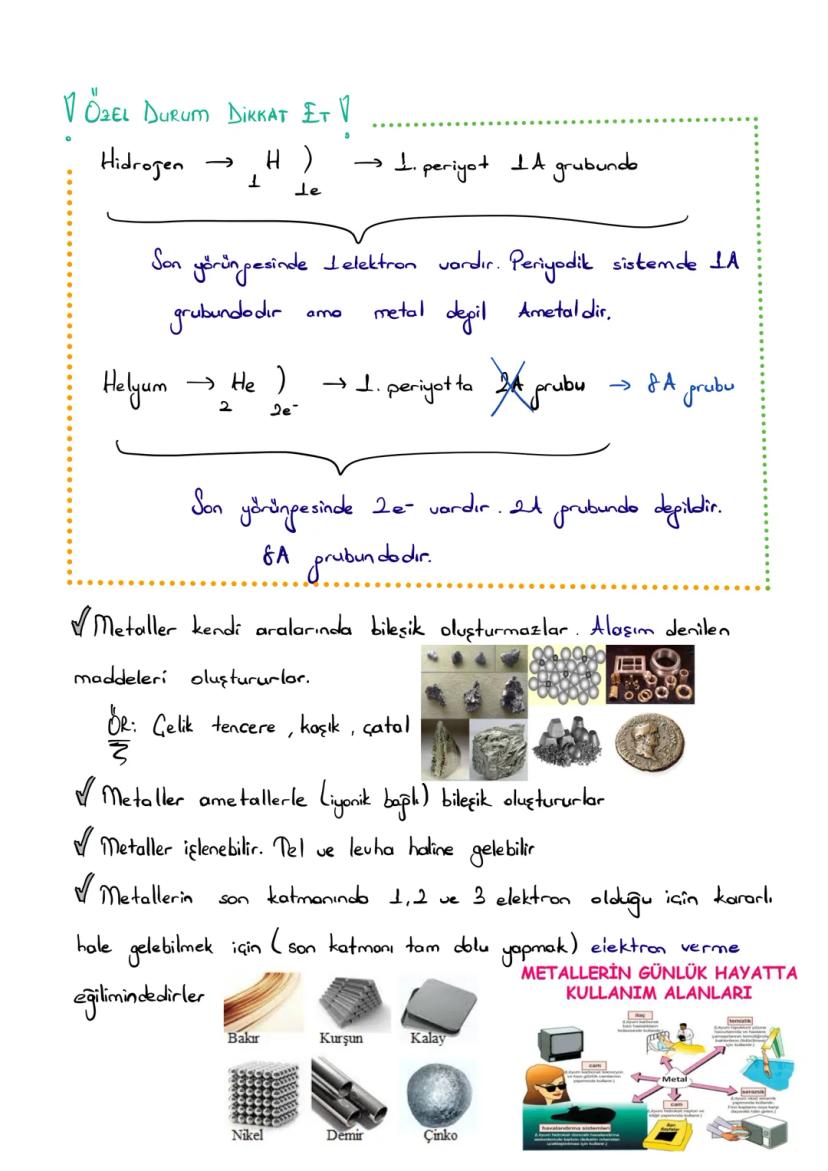 ! ÖZEL DURUM DİKKAT ET !
Hidrojen → ₁H ) 1e → 1. periyot 1A grubunda
Son yörüngesinde 1 elektron vardır. Periyodik sistemde 1A
grubundadır ama metal değil Ametaldir.
Helyum → ₂He ) 2e⁻ → 1. periyotta 2A grubu → 8A grubu
Son yörüngesinde 2e⁻ vardır. 2A grubunda değildir.
8A grubundadır.
✓ Metaller kendi aralarında bileşik oluşturmazlar. Alaşım denilen
maddeleri oluştururlar.
ÖR: Çelik tencere, kaşık, çatal
✓ Metaller ametallerle (iyonik bağlı) bileşik oluştururlar
✓ Metaller işlenebilir. Tel ve levha haline gelebilir
✓ Metallerin son katmanında 1,2 ve 3 elektron olduğu için kararlı
hale gelebilmek için (son katmanı tam dolu yapmak) elektron verme
eğilimindedirler
METALLERİN GÜNLÜK HAYATTA
KULLANIM ALANLARI
Bakır
Kurşun
Kalay
Nikel
Demir
Çinko
ilaç
temizlik
cam
Metal
seramik
cam
havalandırma sistemleri